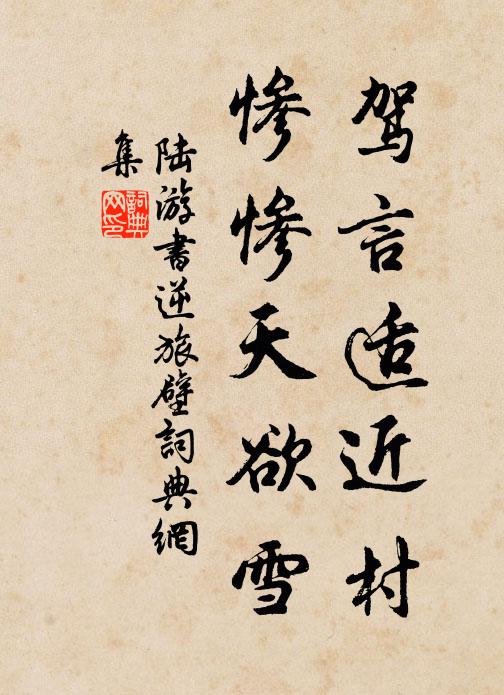 驾言适近村
惨惨天欲雪
陆游书逆旅壁詞典網
集
詞典
网印